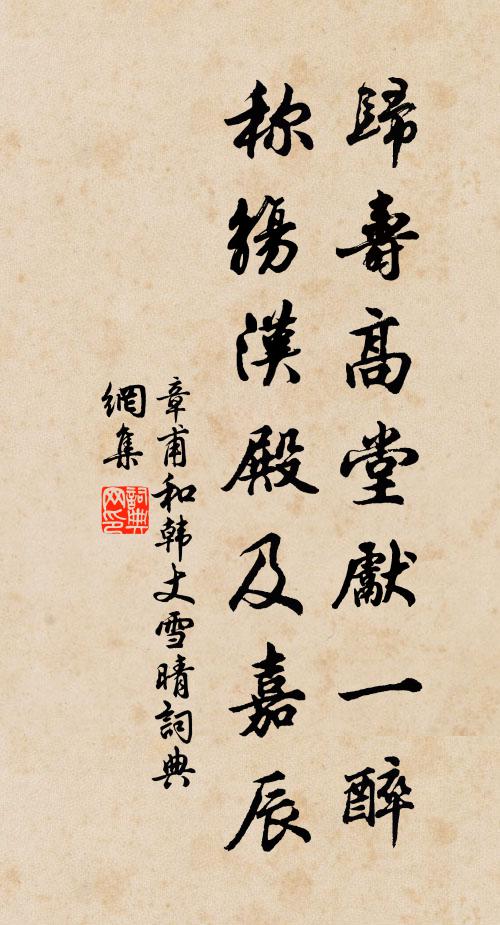 歸壽高堂獻一醉
称觴漢殿及嘉辰
章甫和韩丈雪晴詞典
網集
詞典
网印